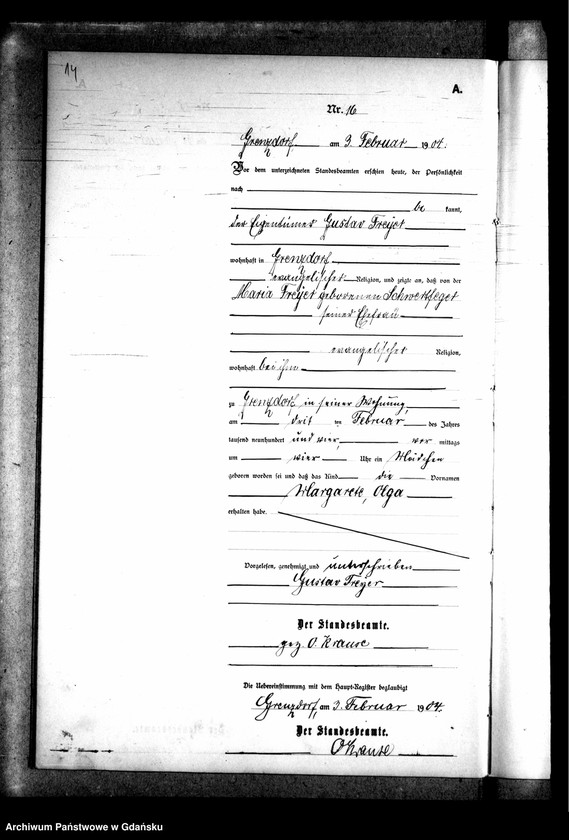 14
A.
Nr. 16
Grenzdorf am 3. Februar 1904.
Vor dem unterzeichneten Standesbeamten erschien heute, der Persönlichkeit
nach
be kannt,
der Eigentümer Gustav Freyer
wohnhaft in Grenzdorf
evangelischer Religion, und zeigte an, daß von der
Maria Freyer geborenen Schwertfeger
seiner Ehefrau
evangelischer Religion,
wohnhaft bei ihm
zu Grenzdorf in seiner Wohnung,
am drit ten Februar des Jahres
tausend neunhundert und vier, vor mittags
um vier Uhr ein Mädchen
geboren worden sei und daß das Kind die Vornamen
Margarete, Olga
erhalten habe.
Vorgelesen, genehmigt und unterschrieben
Gustav Freyer
Der Standesbeamte.
gez. O. Krause
Die Uebereinstimmung mit dem Haupt-Register beglaubigt
Grenzdorf, am 3. Februar 1904.
Der Standesbeamte.
O Krause
Archiwum Państwowe w Gdańsku